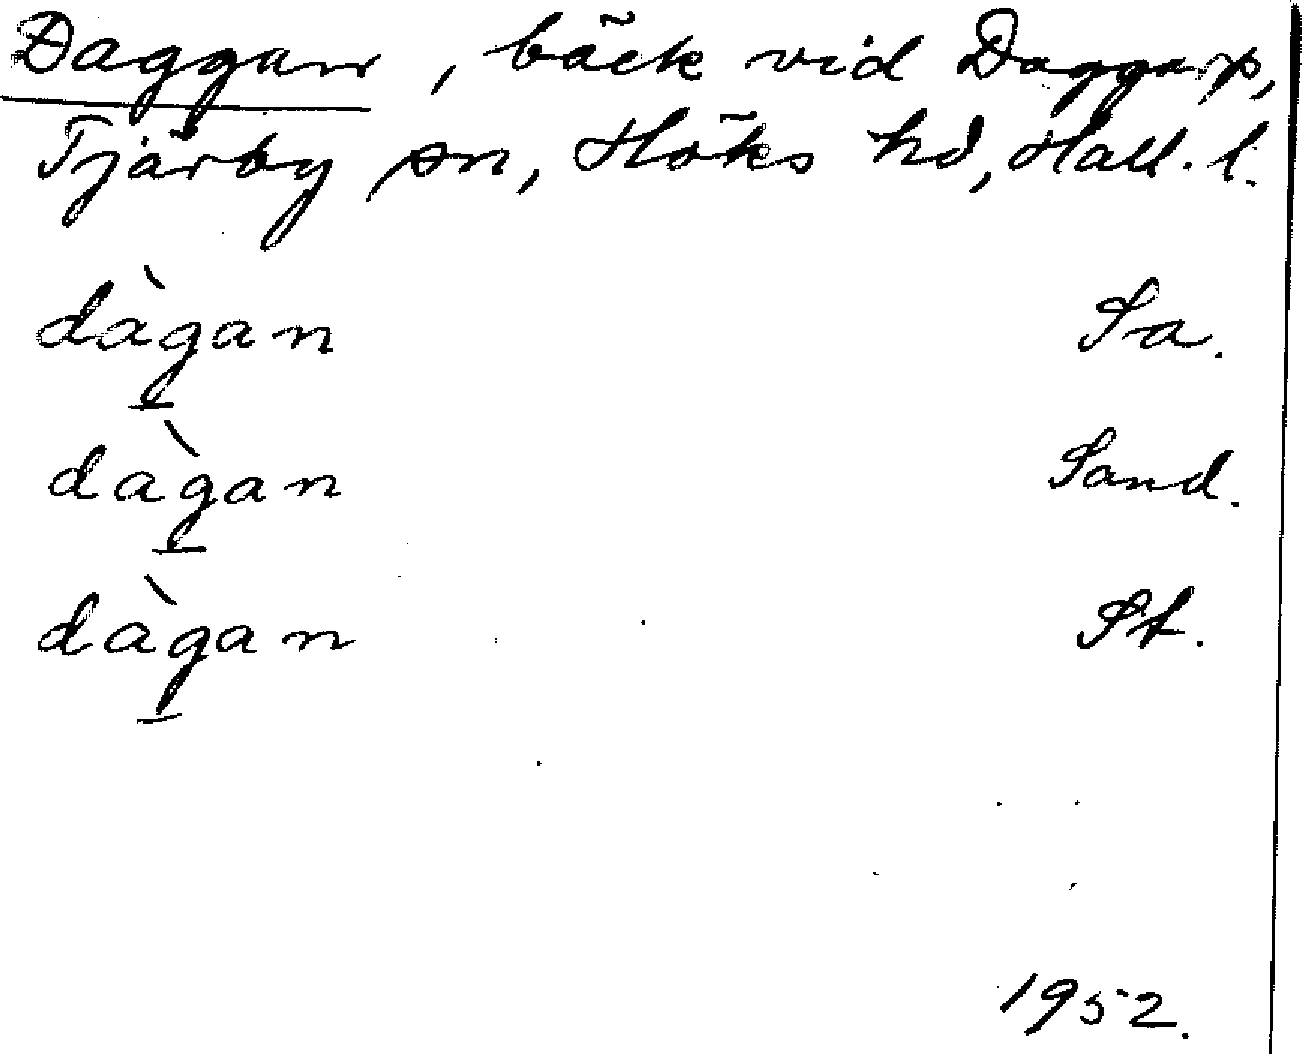 Daggan, bäck vid Daggarp,
Tjärby sn, Höks hd, Hall. l.
dàg̱an Sa.
dàg̱an Sand.
dàg̱an St.
1952.